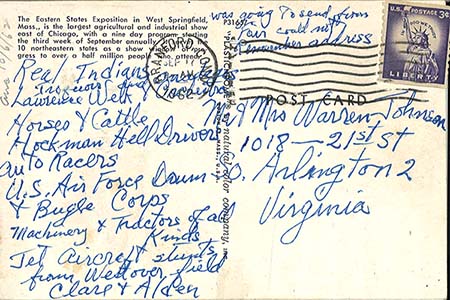 The Eastern States Exposition in West Springfield,
Mass., is the largest agricultural and industrial show
east of Chicago, with a nine day program, starting
the third week of September annually.
10 northeastern states as a show window of
gress to over a half million people who attend.
was going to send from
fair could not
remember address
Real Indians
Iroquois and
Lawrence Welk &
Horses & Cattle
Hockman Hell Drivers
Auto Racers
U.S. Air Force Drum
& Bugle Corps
Machinery & Tractors of all
Kinds
Jet Aircraft stunts
from Westover Field
Clare & Alden
POST CARD
U.S. POSTAGE 3¢
IN GOD WE TRUST
LIBERTY
Mr & Mrs Warren Johnson
1018 - 21st St
So. Arlington 2
Virginia